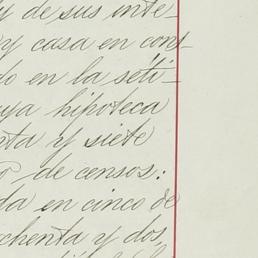 de sus inte-
y casa en con-
do en la séti-
uya hipoteca
nta y siete
de censos:
da en cinco de
chenta y dos